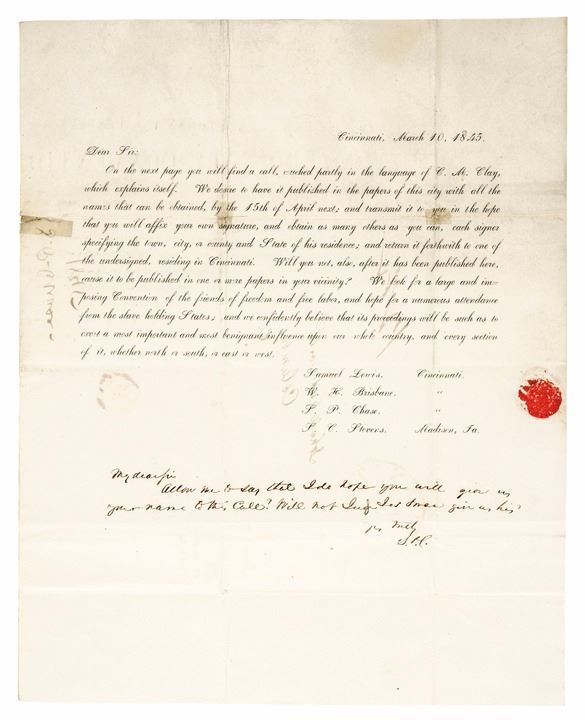 Cincinnati, March 10, 1845.
Dear Sir:
On the next page you will find a call, couched partly in the language of C. M. Clay,
which explains itself. We desire to have it published in the papers of this city with all the
names that can be obtained, by the 15th of April next; and transmit it to you in the hope
that you will affix your own signature, and obtain as many others as you can, each signer
specifying the town, city, or county and State of his residence; and return it forthwith to one of
the undersigned, residing in Cincinnati. Will you not, also, after it has been published here,
cause it to be published in one or more papers in your vicinity? We look for a large and im-
posing Convention of the friends of freedom and free labor, and hope for a numerous attendance
from the slave holding States; and we confidently believe that its proceedings will be such as to
exert a most important and most benignant influence upon our whole country, and every section
of it, whether north or south, or east or west.
Samuel Lewis, Cincinnati.
W. H. Brisbane, "
S. P. Chase, "
S. C. Stevens, Madison, Ia.
My dear sir
Allow me to say that I do hope you will give us
your name to this Call? Will not give us his?
S.P.C.